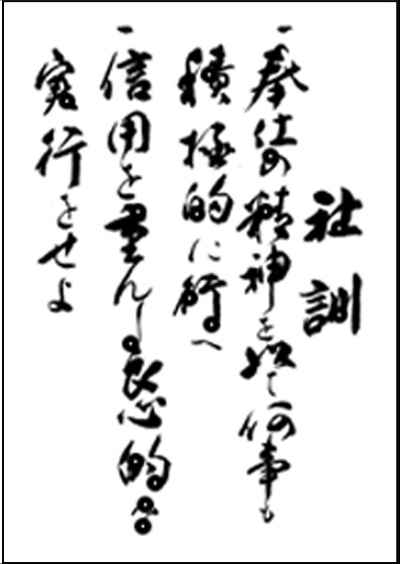 社訓
一奉仕の精神を以て何事も
積極的に行へ
一信用を重んじ良心的な
實行をせよ